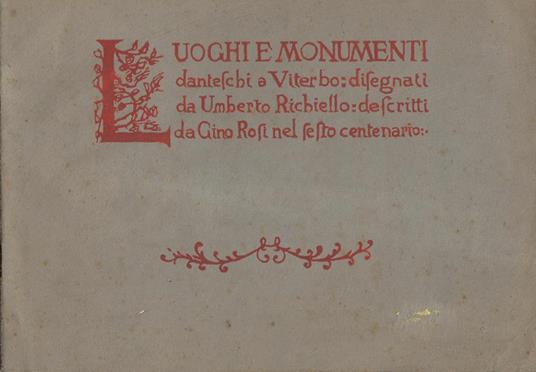 LUOGHI E MONUMENTI
danteſchi a Viterbo: diſegnati
da Umberto Richiello: deſcritti
da Gino Roſi nel ſeſto centenario:·